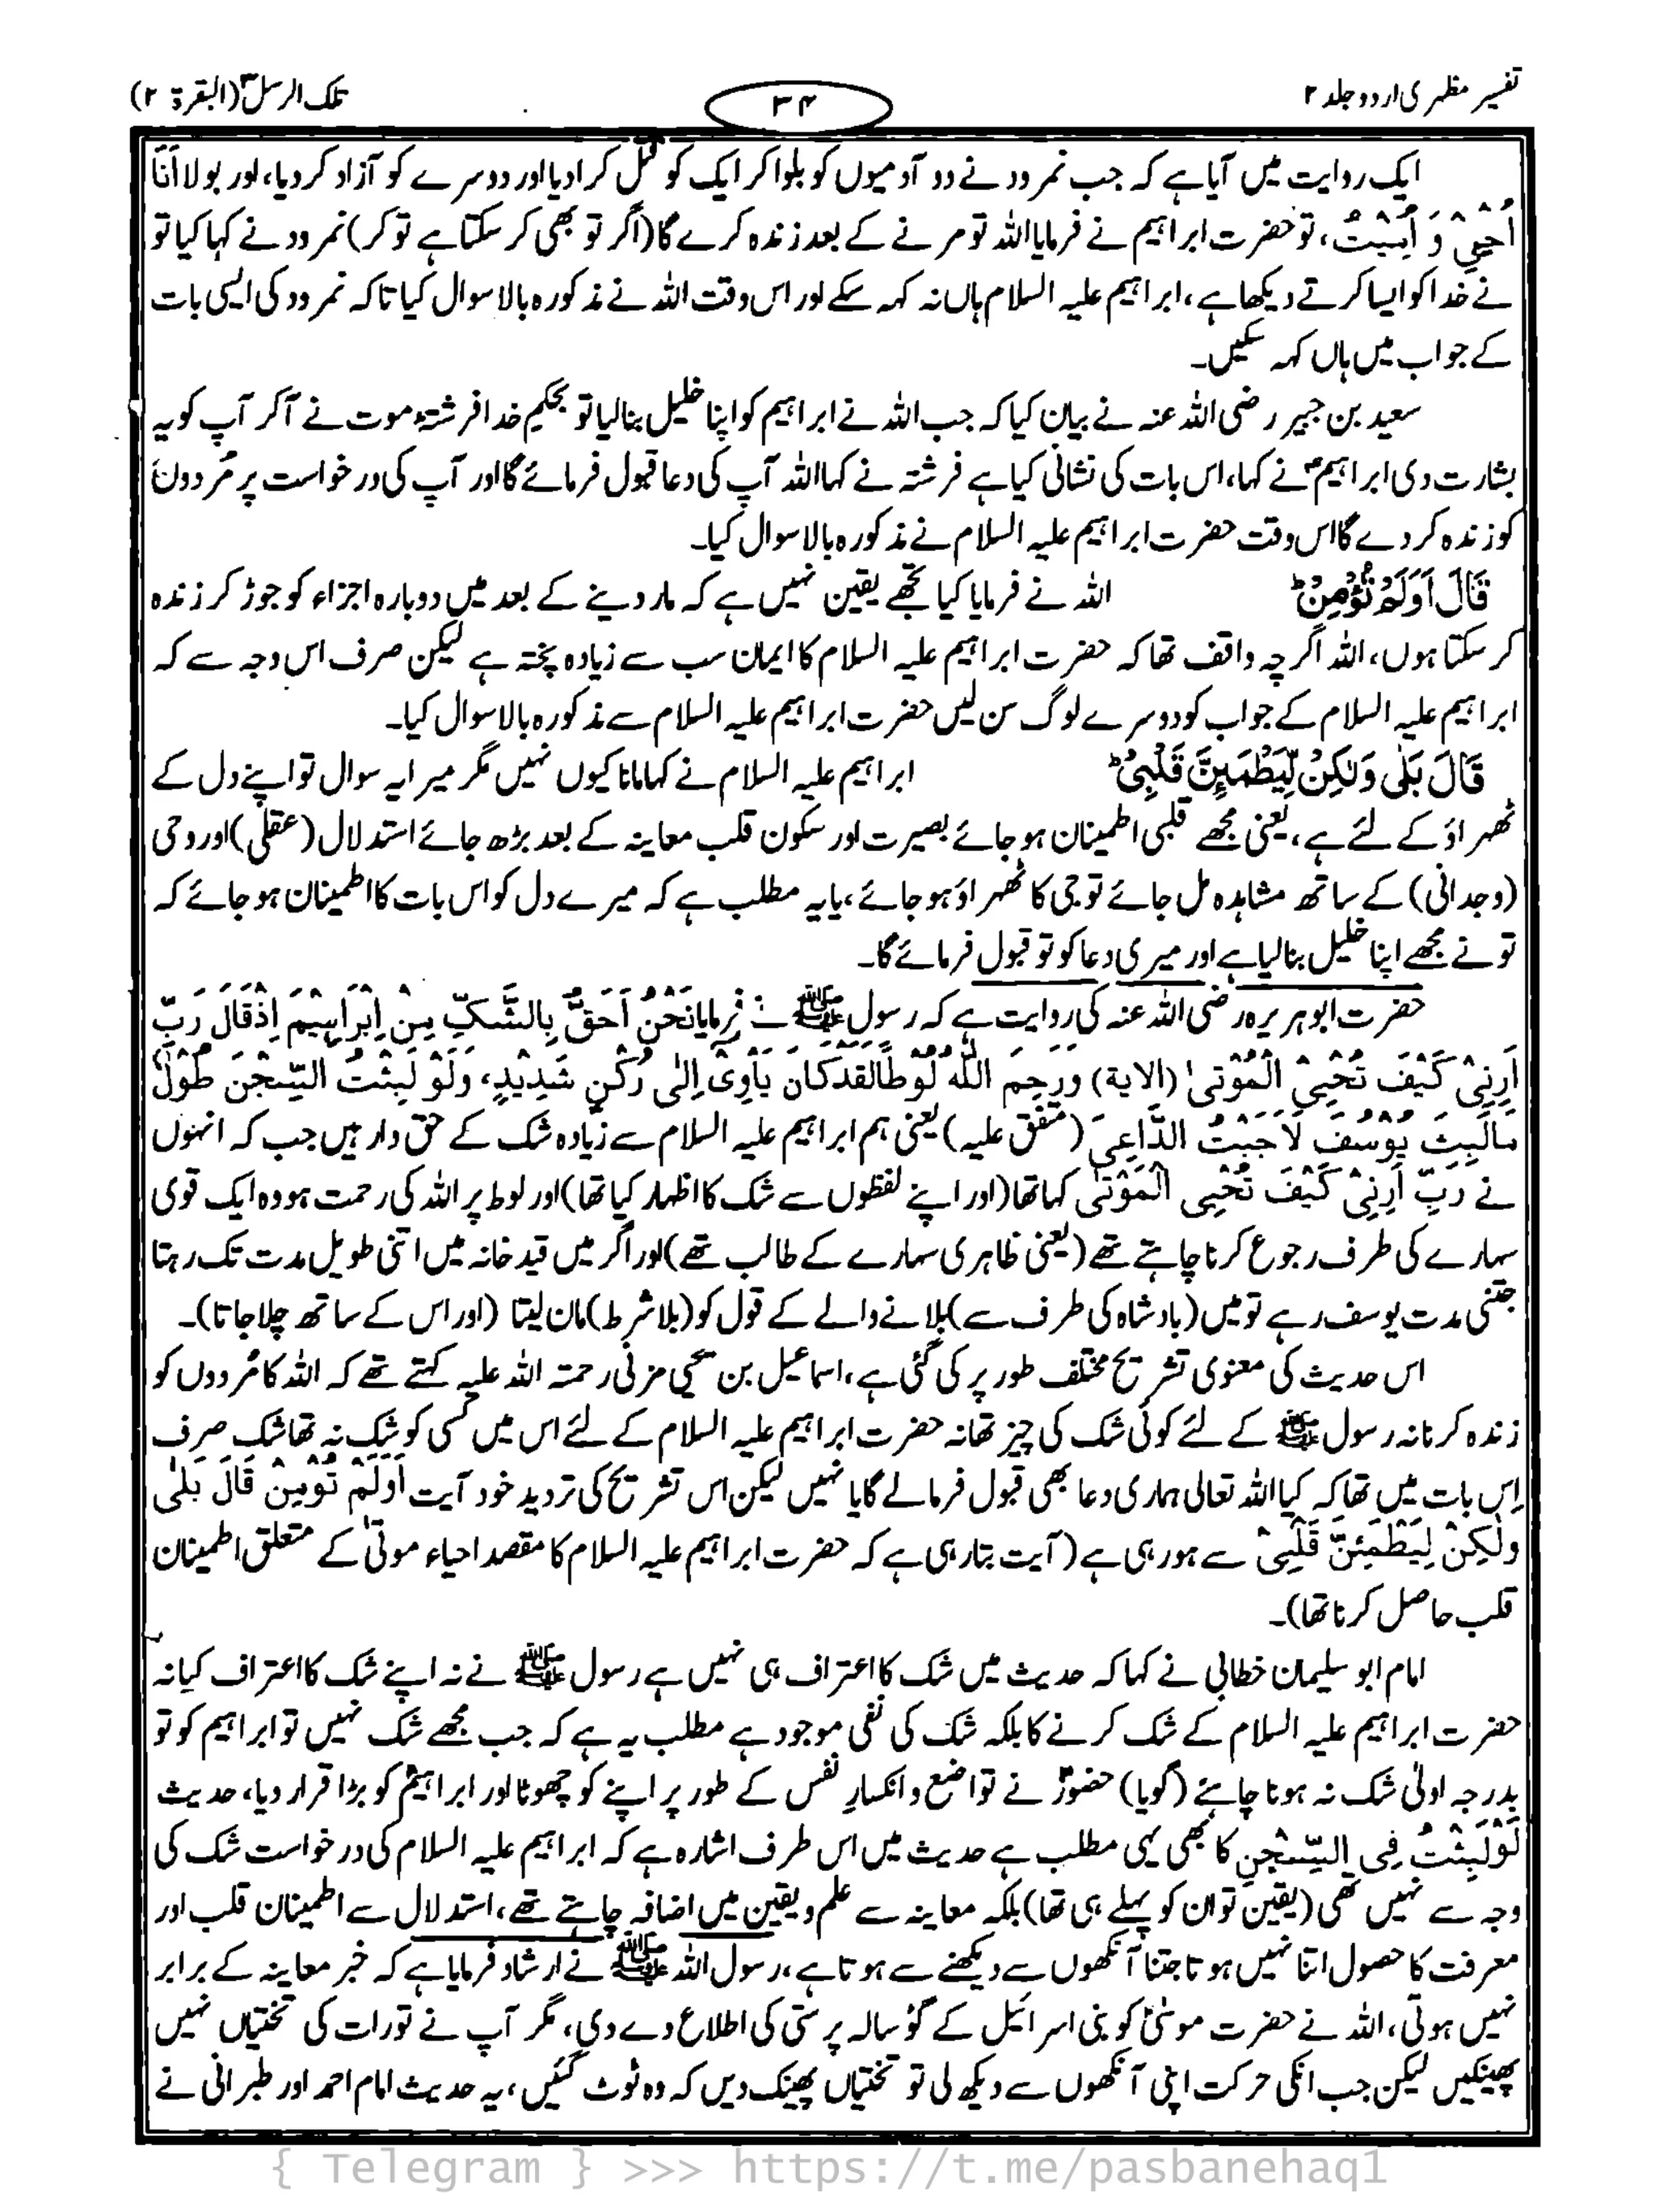 تفسیر مظہری اردو جلد ۲
۳۴
تلک الرسل ۳ (البقرۃ ۲)
ایک روایت میں آیا ہے کہ جب نمرود نے دو آدمیوں کو بلوا کر ایک کو قتل کرا دیا اور دوسرے کو آزاد کر دیا، اور بولا اَنَا
اُحْیِیْ وَ اُمِیْتُ، تو حضرت ابراہیم نے فرمایا اللہ تو مرنے کے بعد زندہ کرے گا (اگر تو بھی کر سکتا ہے تو کر) نمرود نے کہا کیا تو
نے خدا کو ایسا کرتے دیکھا ہے، ابراہیم علیہ السلام ہاں نہ کہہ سکے اور اس وقت اللہ نے مذکورہ بالا سوال کیا تاکہ نمرود کی ایسی بات
کے جواب میں ہاں کہہ سکیں۔
سعید بن جبیر رضی اللہ عنہ نے بیان کیا کہ جب اللہ نے ابراہیم کو اپنا خلیل بنا لیا تو بحکم خدا فرشتۂ موت نے آکر آپ کو یہ
بشارت دی ابراہیمؑ نے کہا، اس بات کی نشانی کیا ہے فرشتہ نے کہا اللہ آپ کی دعا قبول فرمائے گا اور آپ کی درخواست پر مُردوں
کو زندہ کر دے گا اس وقت حضرت ابراہیم علیہ السلام نے مذکورہ بالا سوال کیا۔
قَالَ اَوَلَمْ تُؤْمِنْ ؕ اللہ نے فرمایا کیا تجھے یقین نہیں ہے کہ مار دینے کے بعد میں دوبارہ اجزاء کو جوڑ کر زندہ
کر سکتا ہوں، اللہ اگرچہ واقف تھا کہ حضرت ابراہیم علیہ السلام کا ایمان سب سے زیادہ پختہ ہے لیکن صرف اس وجہ سے کہ
ابراہیم علیہ السلام کے جواب کو دوسرے لوگ سن لیں حضرت ابراہیم علیہ السلام سے مذکورہ بالا سوال کیا۔
قَالَ بَلٰی وَلٰکِنْ لِّیَطْمَئِنَّ قَلْبِیْ ؕ ابراہیم علیہ السلام نے کہا مانا کیوں نہیں مگر میرا یہ سوال تو اپنے دل کے
ٹھہراؤ کے لئے ہے، یعنی مجھے قلبی اطمینان ہو جائے بصیرت اور سکون قلب معاینہ کے بعد بڑھ جائے استدلال (عقلی) اور وحی
(وجدانی) کے ساتھ مشاہدہ مل جائے تو جی کا ٹھہراؤ ہو جائے، یا یہ مطلب ہے کہ میرے دل کو اس بات کا اطمینان ہو جائے کہ
تو نے مجھے اپنا خلیل بنا لیا ہے اور میری دعا کو تو قبول فرمائے گا۔
حضرت ابوہریرہ رضی اللہ عنہ کی روایت ہے کہ رسول ﷺ نے فرمایا نَحْنُ اَحَقُّ بِالشَّکِّ مِنْ اِبْرَاہِیْمَ اِذْ قَالَ رَبِّ
اَرِنِیْ کَیْفَ تُحْیِیْ الْمَوْتٰی (الایۃ) وَرَحِمَ اللّٰہُ لُوْطًا لَقَدْ کَانَ یَأوِیْ اِلٰی رُکْنٍ شَدِیْدٍ، وَلَوْ لَبِثْتُ السِّجْنَ طُوْلَ
مَالَبِثَ یُوْسُفَ لَاَجَبْتُ الدَّاعِیَ (متفق علیہ) یعنی ہم ابراہیم علیہ السلام سے زیادہ شک کے حق دار ہیں جب کہ انہوں
نے رَبِّ اَرِنِیْ کَیْفَ تُحْیِی الْمَوْتٰی کہا تھا (اور اپنے لفظوں سے شک کا اظہار کیا تھا) اور لوط پر اللہ کی رحمت ہو وہ ایک قوی
سہارے کی طرف رجوع کرنا چاہتے تھے (یعنی ظاہری سہارے کے طالب تھے) اور اگر میں قید خانہ میں اتنی طویل مدت تک رہتا
جتنی مدت یوسف رہے تو میں (بادشاہ کی طرف سے) بلانے والے کے قول کو (بلا شرط) مان لیتا (اور اس کے ساتھ چلا جاتا)۔
اس حدیث کی معنوی تشریح مختلف طور پر کی گئی ہے، اسماعیل بن یحییٰ مزنی رحمۃ اللہ علیہ کہتے تھے کہ اللہ کا مُردوں کو
زندہ کرنا نہ رسول ﷺ کے لئے کوئی شک کی چیز تھا نہ حضرت ابراہیم علیہ السلام کے لئے اس میں کسی کو شک نہ تھا شک صرف
اِس بات میں تھا کہ کیا اللہ تعالی ہماری دعا بھی قبول فرما لے گا یا نہیں لیکن اس تشریح کی تردید خود آیت اَوَلَمْ تُوْمِنْ قَالَ بَلٰی
وَلٰکِنْ لِیَطْمَئِنَّ قَلْبِیْ سے ہو رہی ہے (آیت بتا رہی ہے کہ حضرت ابراہیم علیہ السلام کا مقصد احیاء موتٰی کے متعلق اطمینان
قلب حاصل کرنا تھا)۔
امام ابو سلیمان خطابی نے کہا کہ حدیث میں شک کا اعتراف ہی نہیں ہے رسول ﷺ نے نہ اپنے شک کا اعتراف کیا نہ
حضرت ابراہیم علیہ السلام کے شک کرنے کا بلکہ شک کی نفی موجود ہے مطلب یہ ہے کہ جب مجھے شک نہیں تو ابراہیم کو تو
بدرجہ اولٰی شک نہ ہونا چاہئے (گویا) حضورؐ نے تواضع و انکسارِ نفس کے طور پر اپنے کو چھوٹا اور ابراہیمؑ کو بڑا قرار دیا، حدیث
لَوْلَبِثْتُ فِی السِّجْنِ کا بھی یہی مطلب ہے حدیث میں اس طرف اشارہ ہے کہ ابراہیم علیہ السلام کی درخواست شک کی
وجہ سے نہیں تھی (یقین تو ان کو پہلے ہی تھا) بلکہ معاینہ سے علم و یقین میں اضافہ چاہتے تھے، استدلال سے اطمینان قلب اور
معرفت کا حصول اتنا نہیں ہوتا جتنا آنکھوں سے دیکھنے سے ہوتا ہے، رسول اللہ ﷺ نے ارشاد فرمایا ہے کہ خبر معاینہ کے برابر
نہیں ہوتی، اللہ نے حضرت موسٰیؑ کو بنی اسرائیل کے گؤسالہ پرستی کی اطلاع دے دی، مگر آپ نے تورات کی تختیاں نہیں
پھینکیں لیکن جب انکی حرکت اپنی آنکھوں سے دیکھ لی تو تختیاں پھینک دیں کہ وہ ٹوٹ گئیں، یہ حدیث امام احمد اور طبرانی نے
{ Telegram } >>> https://t.me/pasbanehaq1